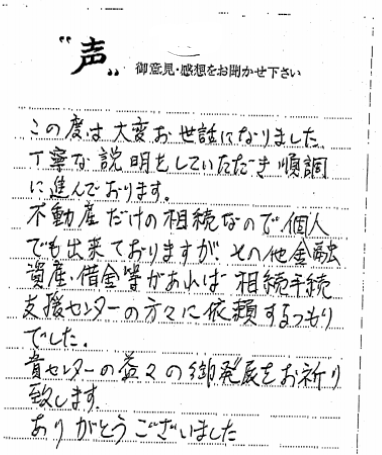 "声"
御意見・感想をお聞かせ下さい
この度は大変お世話になりました。
丁寧な説明をしていただき順調
に進んでおります。
不動産だけの相続なので個人
でも出来ておりますが、その他金融
資産、借金等があれば相続手続
支援センターの方々に依頼するつもり
でした。
貴センターの益々の御発展をお祈り
致します
ありがとうございました